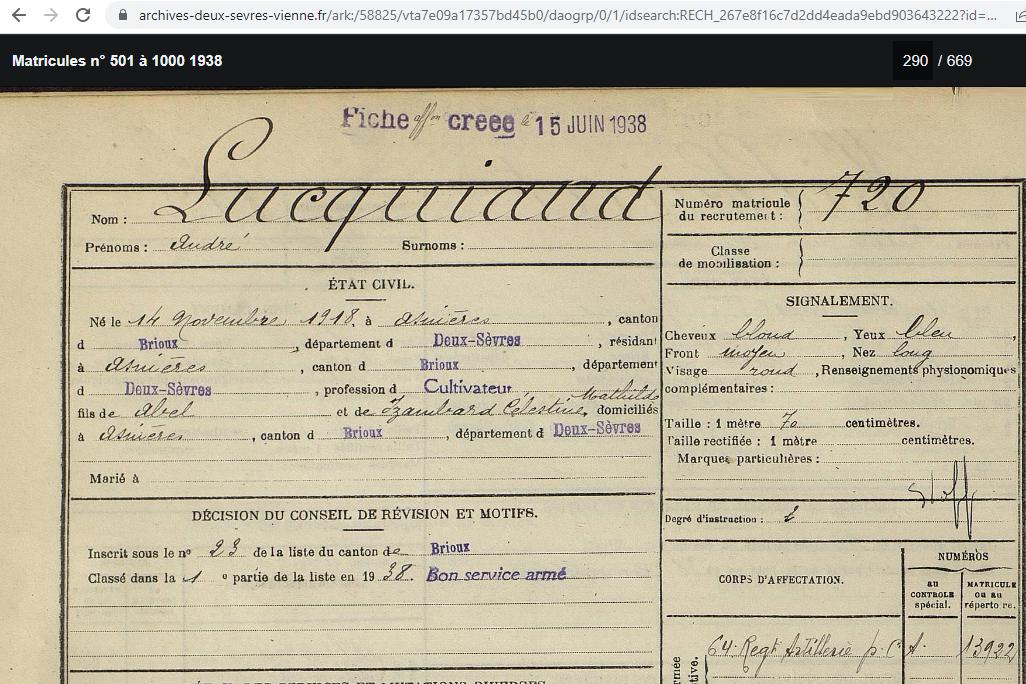 archives-deux-sevres-vienne.fr/ark:/58825/vta7e09a17357bd45b0/daogrp/0/1/idsearch:RECH_267e8f16c7d2dd4eada9ebd903643222?id=...
Matricules n° 501 à 1000 1938
290 / 669
Fiche creee 15 JUIN 1938
Nom : Lucquiaud
Prénoms : André Surnoms :
Numéro matricule du recrutement : 720
Classe de mobilisation :
ÉTAT CIVIL.
Né le 14 Novembre 1918, à Asnières, canton
d Brioux, département d Deux-Sèvres, résidant
à Asnières, canton d Brioux, département
d Deux-Sèvres, profession d Cultivateur
fils de Abel et de Izambard Célestine Mathilde, domiciliés
à Asnières, canton d Brioux, département d Deux-Sèvres
Marié à
SIGNALEMENT.
Cheveux blond, Yeux bleu,
Front moyen, Nez long
Visage rond, Renseignements physionomiques
complémentaires :
Taille : 1 mètre 70 centimètres.
Taille rectifiée : 1 mètre centimètres.
Marques particulières :
Degré d'instruction : 2
DÉCISION DU CONSEIL DE RÉVISION ET MOTIFS.
Inscrit sous le no 23 de la liste du canton de Brioux
Classé dans la 1 e partie de la liste en 1938. Bon service armé
CORPS D'AFFECTATION.
NUMÉROS
au CONTROLE spécial.
MATRICULE ou au répertoire.
64. Regt Artillerie 13922